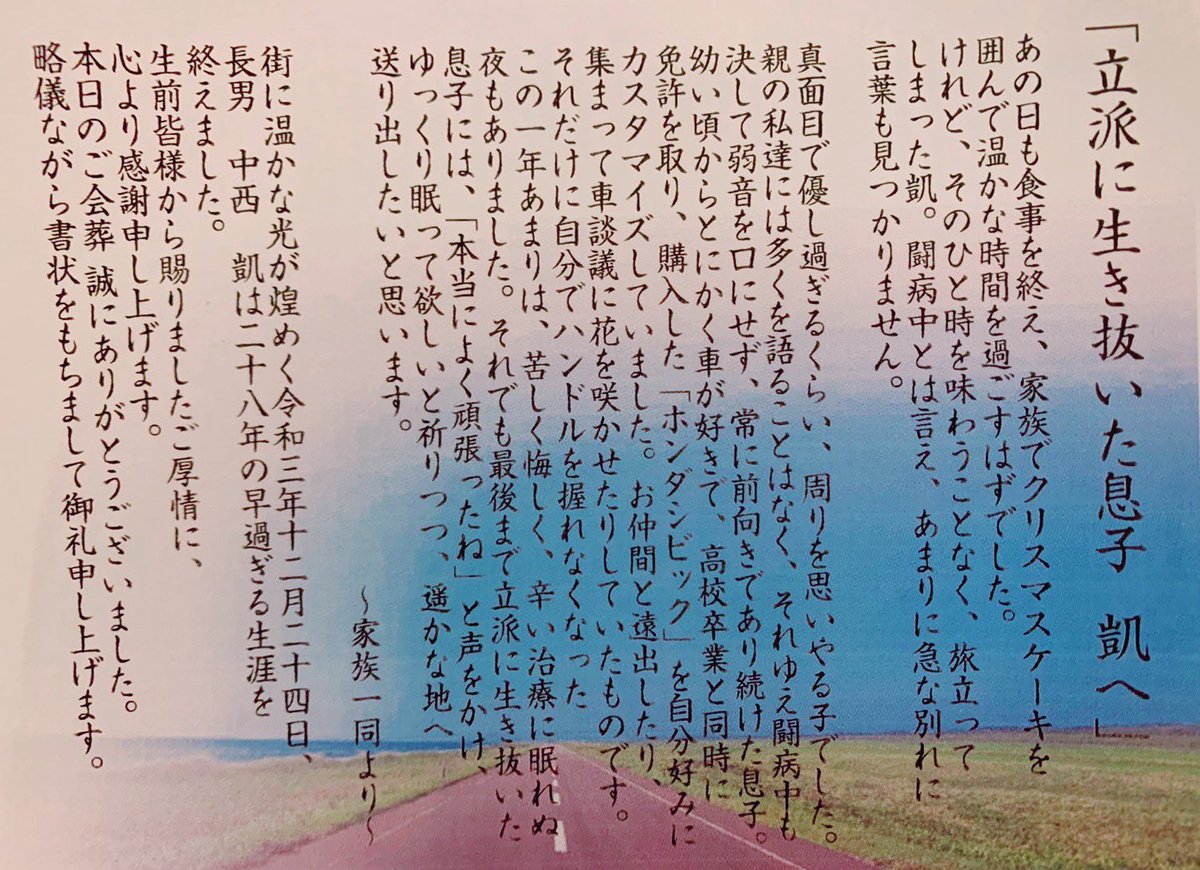 「立派に生き抜いた息子　凱へ」
あの日も食事を終え、家族でクリスマスケーキを
囲んで温かな時間を過ごすはずでした。
けれど、そのひと時を味わうことなく、旅立って
しまった凱。闘病中とは言え、あまりに急な別れに
言葉も見つかりません。
真面目で優し過ぎるくらい、周りを思いやる子でした。
親の私達には多くを語ることはなく、それゆえ闘病中も
決して弱音を口にせず、常に前向きであり続けた息子。
幼い頃からとにかく車が好きで、高校卒業と同時に
免許を取り、購入した「ホンダシビック」を自分好みに
カスタマイズしていました。お仲間と遠出したり、
集まって車談議に花を咲かせたりしていたものです。
それだけに自分でハンドルを握れなくなった
この一年あまりは、苦しく悔しく、辛い治療に眠れぬ
夜もありました。それでも最後まで立派に生き抜いた
息子には、「本当によく頑張ったね」と声をかけ、
ゆっくり眠って欲しいと祈りつつ、遥かな地へ
送り出したいと思います。
～家族一同より～
街に温かな光が煌めく令和三年十二月二十四日、
長男　中西　凱は二十八年の早過ぎる生涯を
終えました。
生前皆様から賜りましたご厚情に、
心より感謝申し上げます。
本日のご会葬 誠にありがとうございました。
略儀ながら書状をもちまして御礼申し上げます。